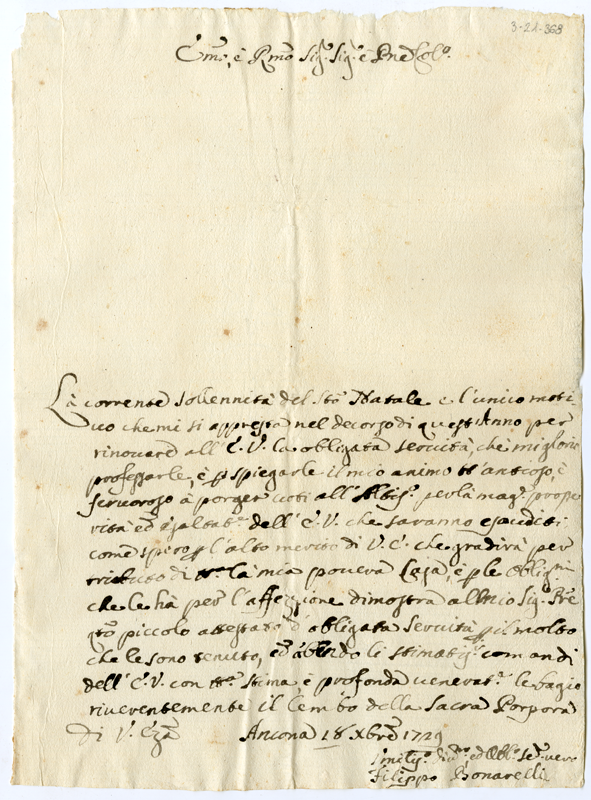 3-21-368
Em̃o, è Rm̃o Sig.r Sig.r è Pñe Col.o
La corrente sollennità del Sto Natale e l'unico moti
uo che mi si appresta nel decorso di quest'Anno per
rinouare all'E.V. la obligata seruità, che migloria
professarle, è spiegarle il mio animo
feruoroso à porger uoti all'Altis.o per la mag.r prospe
rità ed esaltat.e dell'E.V. che saranno esauditi
come spero l'alto merito di V.E. che gradirà per
tributo di la mia pouera Casa, è
che le hà per l'affezzione dimostra al Mio Sig.r Pre
qto piccolo attestato d'obligata Seruitù il molto
che le sono tenuto, ed le stimatis.i comandi
dell'E.V. con stima, è profonda uenerat.e le bagio
riuerentemente il lembo della Sacra Porpora
di V. Ezã Ancona 18 Xbre 1729
ed Obl.o Se.r uero
Filippo Bonarelli